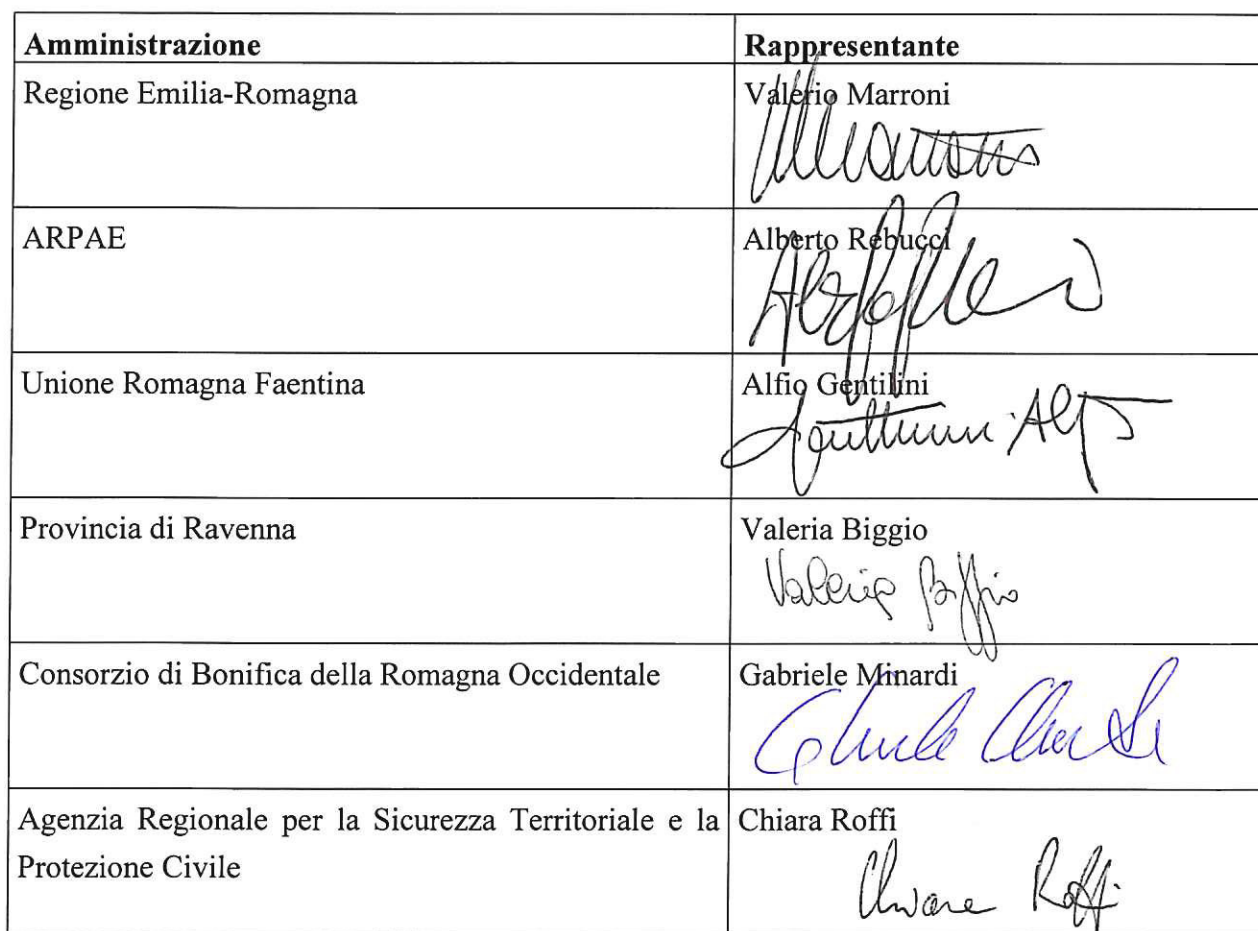 Amministrazione Rappresentante
Regione Emilia-Romagna Valerio Marroni
ARPAE Alberto Rebucci
Unione Romagna Faentina Alfio Gentilini
Provincia di Ravenna Valeria Biggio
Valeria Biggio
Consorzio di Bonifica della Romagna Occidentale Gabriele Minardi
Agenzia Regionale per la Sicurezza Territoriale e la Chiara Roffi
Protezione Civile
Chiara Roffi